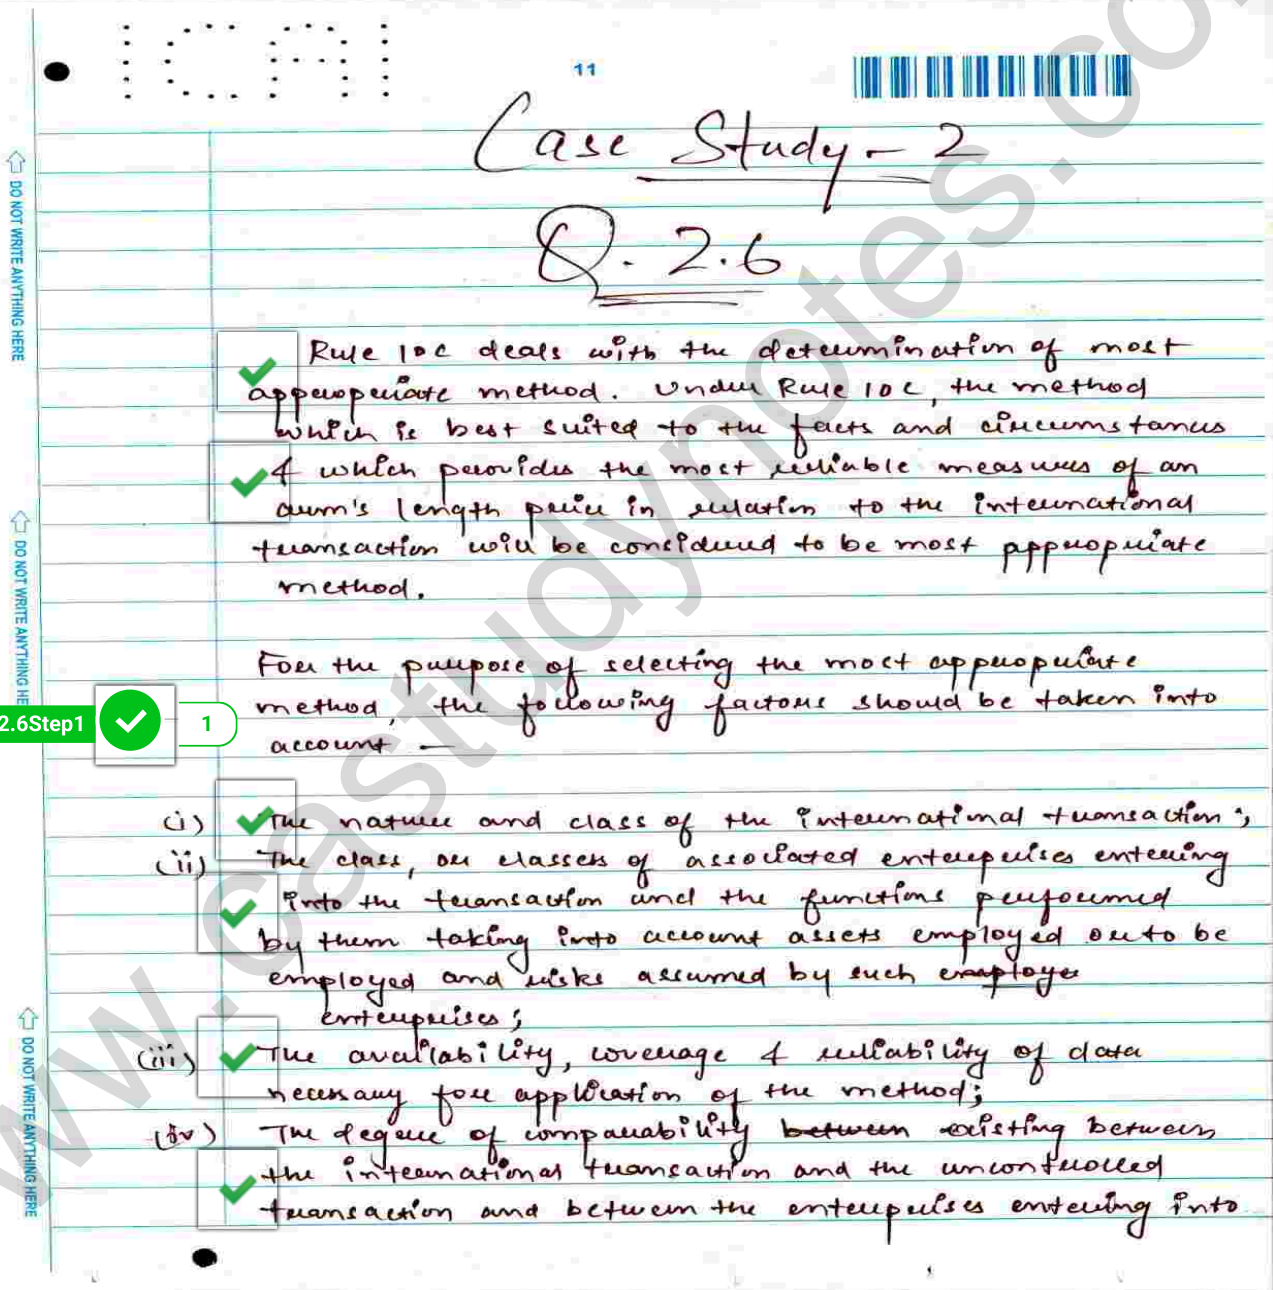 ICAI
11
Case Study - 2
Q. 2.6
Rule 10C deals with the determination of most
appropriate method. Under Rule 10C, the method
which is best suited to the facts and circumstances
& which provides the most reliable measures of an
arm's length price in relation to the international
transaction will be considered to be most appropriate
method.
For the purpose of selecting the most appropriate
method, the following factors should be taken into
account —
2.6Step1
1
(i) The nature and class of the international transaction;
(ii) The class, or classes of associated enterprises entering
into the transaction and the functions performed
by them taking into account assets employed or to be
employed and risks assumed by such employe
enterprises;
(iii) The availability, coverage & reliability of data
necessary for application of the method;
(iv) The degree of comparability between existing between
the international transaction and the uncontrolled
transaction and between the enterprises entering into
DO NOT WRITE ANYTHING HERE
DO NOT WRITE ANYTHING HE
DO NOT WRITE ANYTHING HERE
w.castudynotes.co